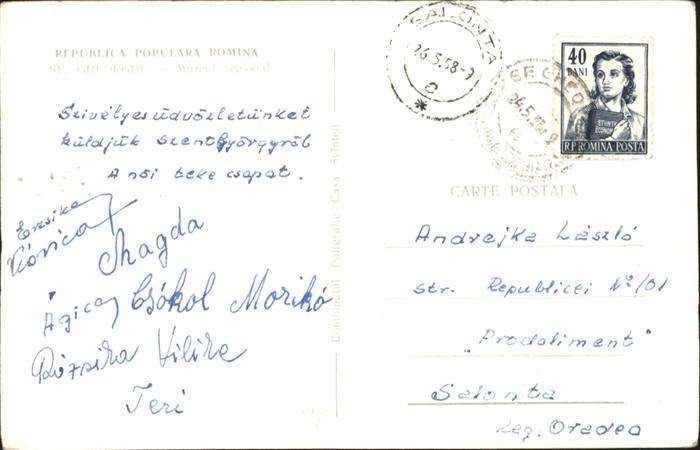 REPUBLICA POPULARA ROMINA
SF. GHEORGHE – Muzeul regional
Szivélyes üdvözletünket
küldjük Szentgyörgyről
A női teke csapat.
Erzsike
Viorica
Magda
Ágica Csókol Marikó
Rózsika Vilike
Teri
Combinatul Poligrafic Casa Scînteii
SALONTA
26.5.58-9
40
BANI
R.P. ROMINA POSTA
CARTE POSTALA
Andrejka László
str. Republicei Nº/01
"Prodaliment"
Salonta
Reg. Oradea